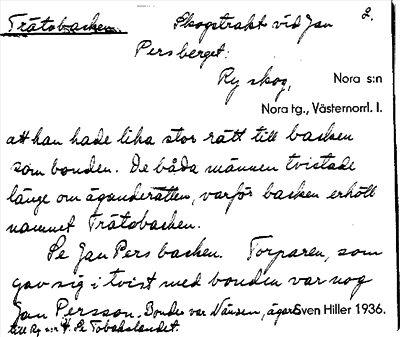 Trätobacken. Skogstrakt vid Jan 2.
Persberget.
Ry skog, Nora s:n
Nora tg., Västernorrl. l.
att han hade lika stor rätt till backen
som bonden. De båda männen tvistade
länge om äganderätten, varför backen erhöll
namnet Trätobacken.
Se Jan Pers backen. Torparen, som
gav sig i tvist med bonden var nog
Jan Persson. Bonden var Nänsen, ägare Sven Hiller 1936.
till Ry n:r 4. Se Tobakslandet.